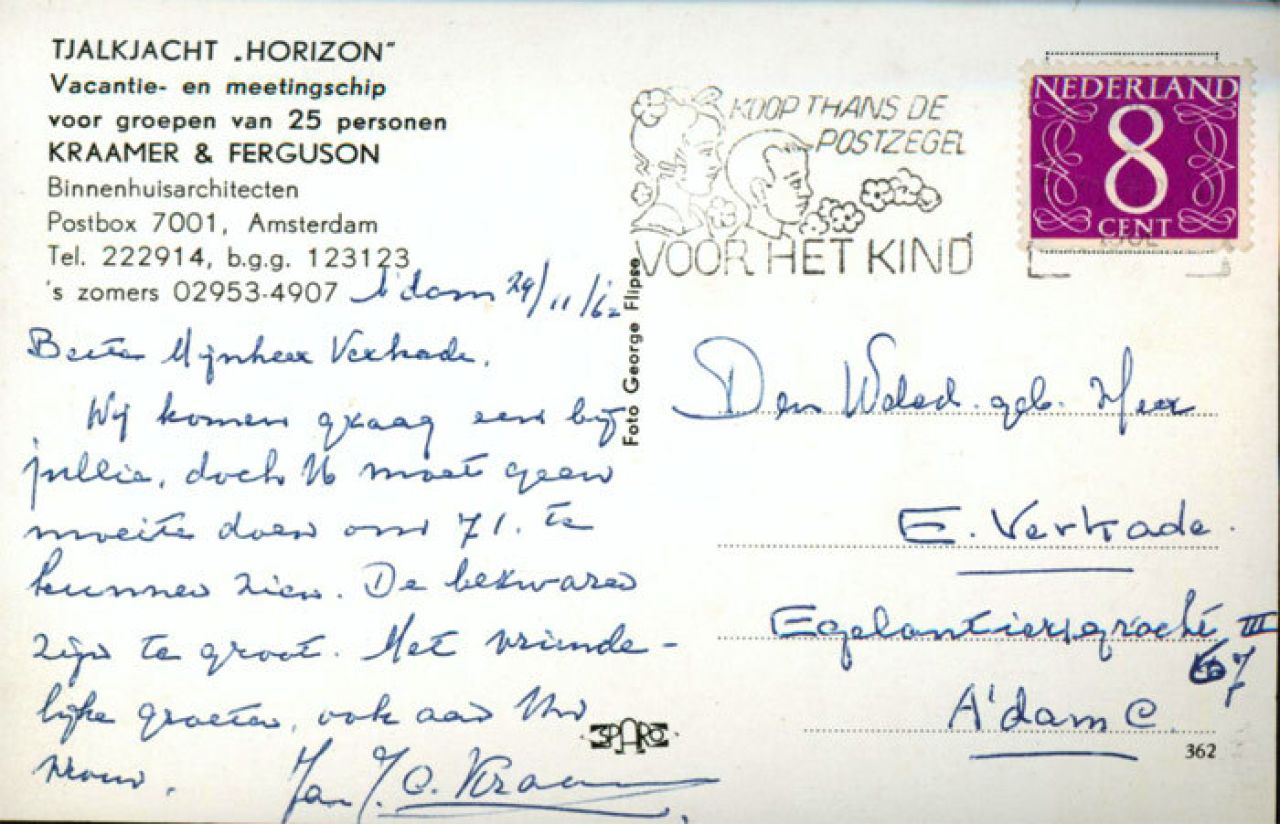 TJALKJACHT „HORIZON"
Vacantie- en meetingschip
voor groepen van 25 personen
KRAAMER & FERGUSON
Binnenhuisarchitecten
Postbox 7001, Amsterdam
Tel. 222914, b.g.g. 123123
's zomers 02953-4907
A'dam 29/11/62
Beste Mijnheer Verkade.
Wij komen graag eens bij
jullie, doch U moet geen
moeite doen om 71. te
kunnen zien. De bezwaren
zijn te groot. Met vriende-
lijke groeten, ook aan Uw
vrouw.
Jan J. C. Kraamer
Foto George Flipse
KOOP THANS DE
POSTZEGEL
VOOR HET KIND
NEDERLAND
8
CENT
1962
Den Weled. geb. Heer
E. Verkade.
Egelantiersgracht III
67
A'dam C.
SPARO
362